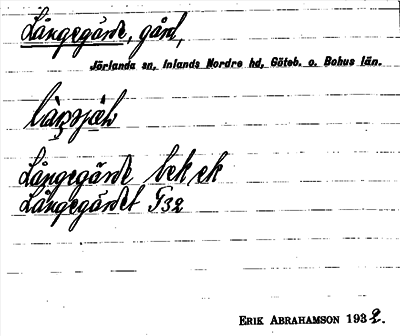 Långegärde, gård,
Jörlanda sn, Inlands Nordre hd, Göteb. o. Bohus län.
Långegärde bek ek
Långegärdet G32
ERIK ABRAHAMSON 1932.